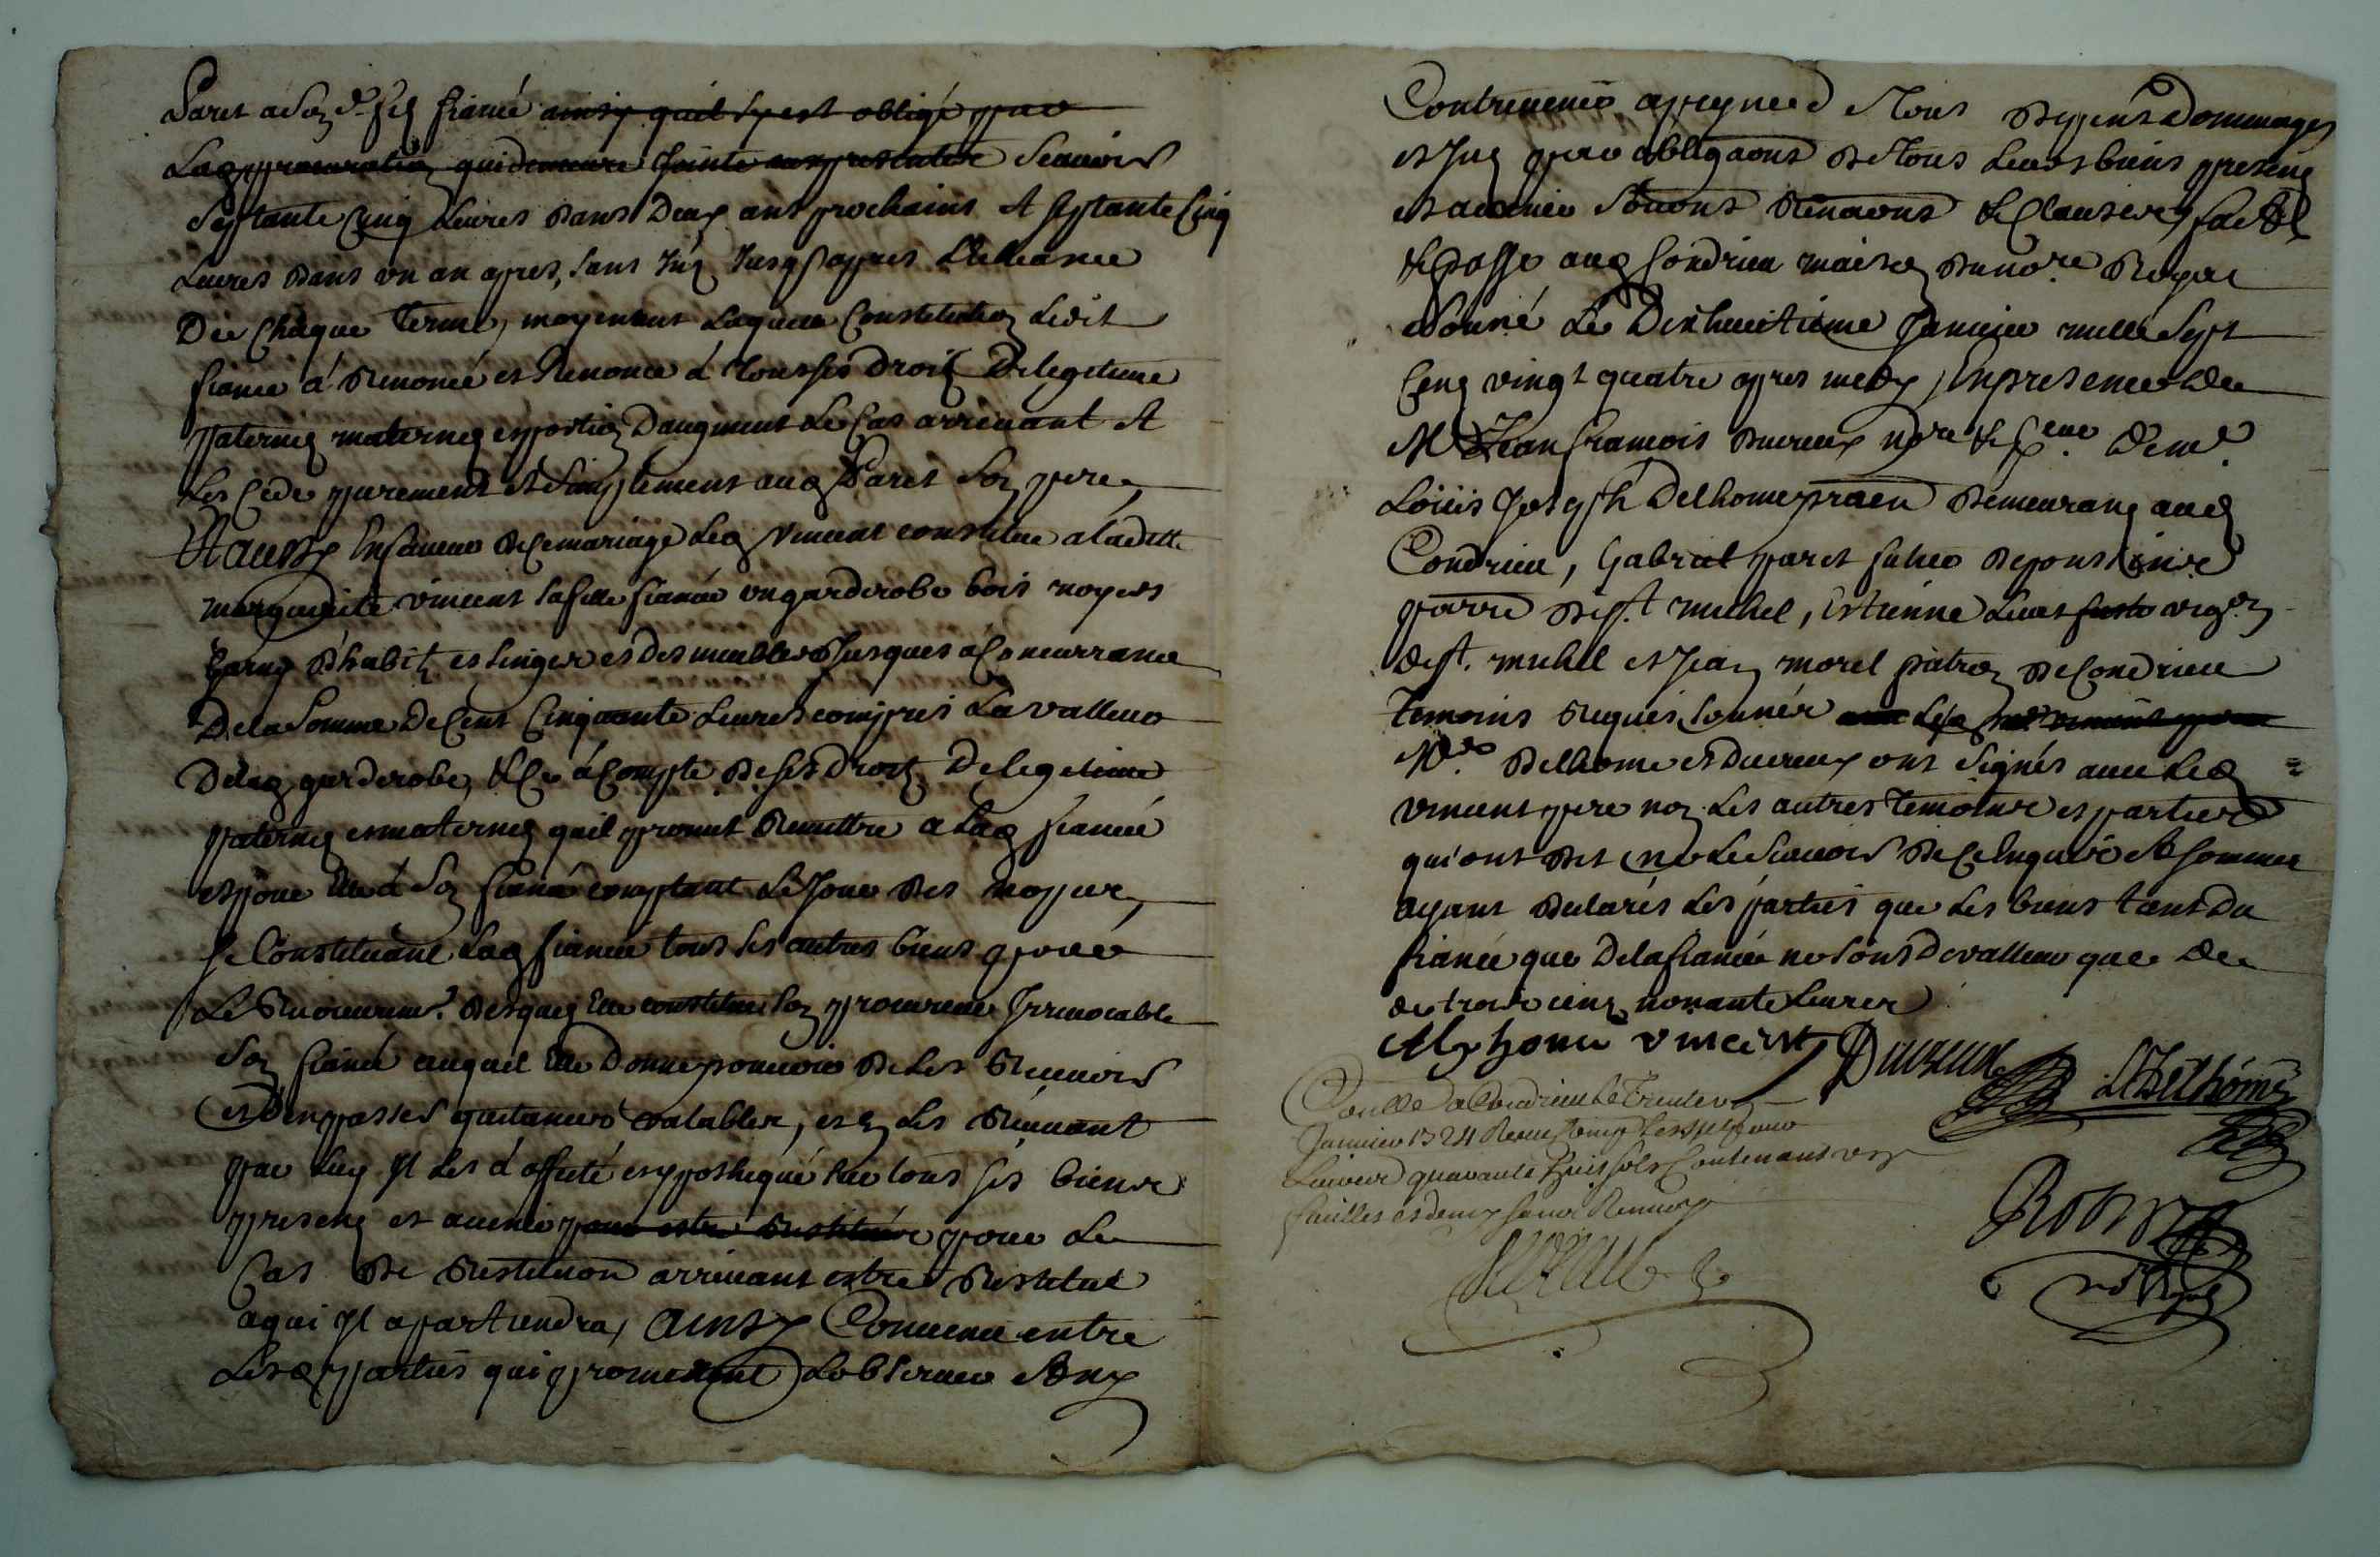 Paret a son d. fils fiancé ainsy quil sy est obligé par
lad procuration qui demeure jointe aux presentes scauoir
septante cinq liures dans deux ans prochains et septante cinq
liures dans vn an apres, sans int jusqs apres l'echeance
de chaque terme, moyenant laquelle constitution ledit
fiancé a renoncé et renonce a tous ses droits de legitime
paternes maternes et portion daugment le cas arriuant et
les cede purement et simplement aud Paret son pere,
Et aussy en faueur de ce mariage led Vincent constitue a laditte
marguerite vincent sa fille fiancée vn garderobe bois noyers
garny d'habits et linges et des meubles jusques a concurrance
de la somme de cent cinquante liures compris la valleur
dela garderobe, & ce a compte de ses droits de legitime
paternes et maternes quil promet remettre a lad fiancée
et pour elle a son fiancé comptant le jour des nopces,
se constituant lad fiancée tous ses autres biens pour
le recouurem.t desquels elle constitue son procureur irreuocable
son fiancé auquel elle donne pouuoir de les receuoir
et d'en passer quitances valables, et en les receuant
par luy il les a affecté et ypothequé sur tous ses biens
presens et auenir pour estre restitués pour le
cas de restitution arriuant estre restitué
a qui il apartiendra, ainsy conuenu entre
lesd parties qui promettent l'obseruer sans y
contreuenir a peyne de tous depens dommages
et int par obligaons de tous leurs biens presens
et auenir soumons renaons & clauses, fait
& passé aud Condrieu maison du no.re royal
soussné le dixhuitieme januier mille sept
cens vingt quatre apres midy, en presence de
M.e Jean francois Dureux no.re &
Louis Joseph Delhome praen demeurans aud
Condrieu, Gabriel paret
parre de S.t michel, Estienne vigron
de S.t michel et Jean morel patron de Condrieu
temoins requis sonnés
M.rs Delhome et Dureux ont signés auec led
vincent pere non les autres temoins et parties
qui ont dit ne le scauoir de ce enquis & sommés
ayant declarés les parties que les biens tant du
fiancé que de la fiancée ne sont de valleur que de
de trois cens nonante liures
Alphonce vincent Dureux LJDelhome
Conllé a Condrieu le trente vn
januier 1724 Receu
liures quarante huit sols contenant vn
feuilles et demy sauf renuoy